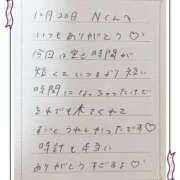 12月20日 Nくんへ
いつもありがとう♡
今日は空き時間が
短くていつもより短い
時間になっちゃったけど
それでも来てくれて
すごくうれしかったです♡
時計も本当に
ありがとうすぎるよ♡